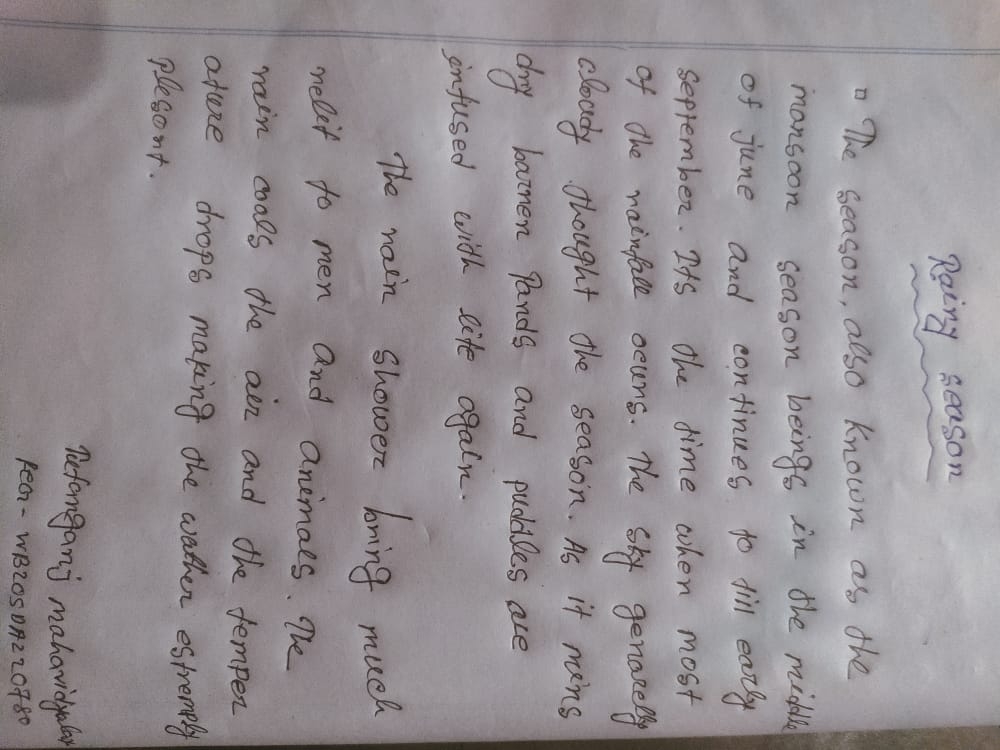 Rainy season
▫ The season, also known as the
monsoon season beings in the middle
of june and continues to till early
september. Its the time when most
of the rainfall ocurs. The sky genarelly
cloudy thought the season. As it rains
dry barren lands and puddles are
infused with life again.
The rain shower bring much
relif to men and animals. The
rain cools the air and the temper
ature drops making the wather estremply
plesant.
mahavidyalay
WB205DAZ220780